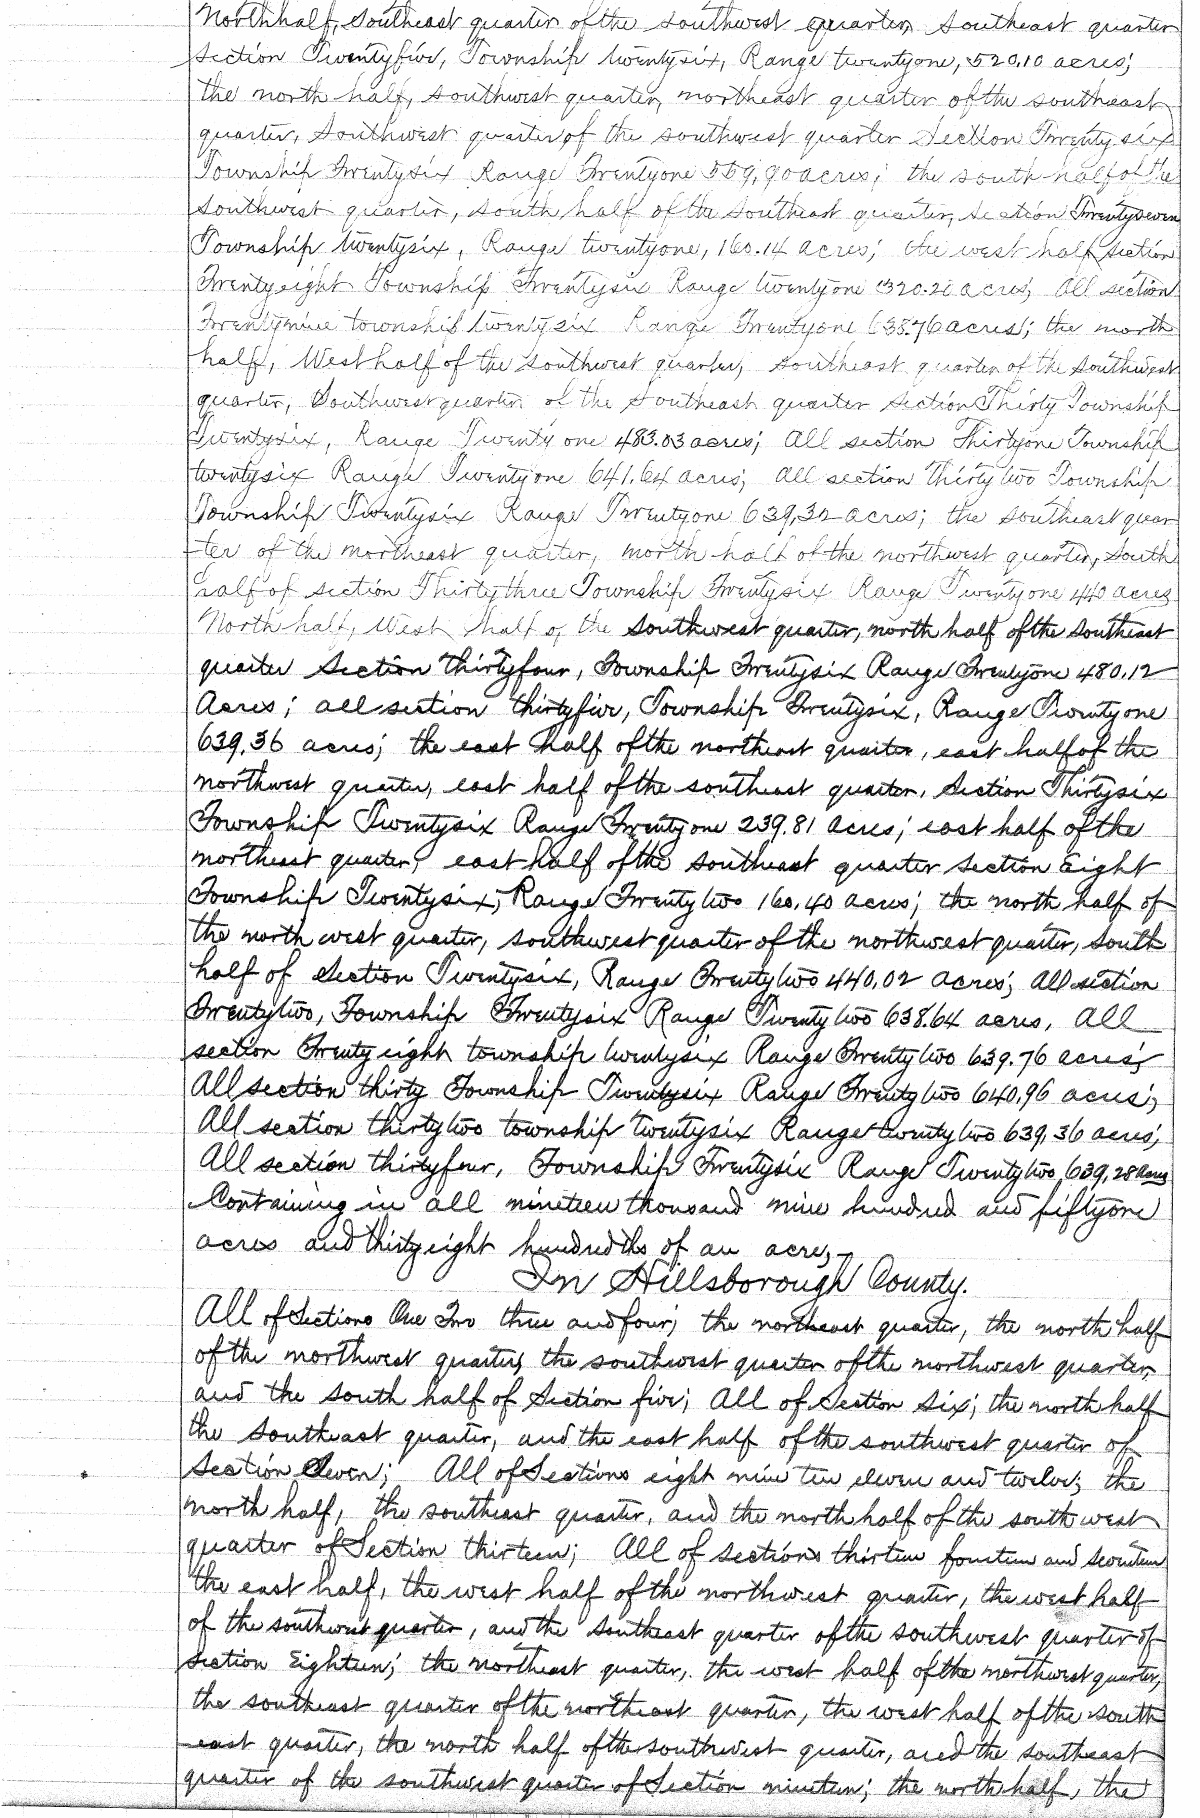 North half, Southeast quarter of the Southwest quarter, Southeast quarter
Section Twentyfive, Township twentysix, Range twentyone, 520.10 acres;
the north half, southwest quarter, northeast quarter of the southeast
quarter, Southwest quarter of the southwest quarter Section Twenty six
Township Twentysix Range Twentyone 559,90 acres; the south half of the
Southwest quarter, south half of the Southeast quarter, section Twentyseven
Township twentysix, Range twentyone, 160.14 acres; the west half section
Twentyeight Township Twentysix Range twentyone 320.20 acres, All section
Twentynine township twentysix Range Twentyone 638.76 acres; the north
half, West half of the southwest quarter, southeast quarter of the southwest
quarter, Southwest quarter of the Southeast quarter Section Thirty Township
Twentysix, Range Twenty one 483.03 acres; All section Thirtyone Township
twentysix Range Twentyone 641.64 acres; All section thirty two Township
Township Twentysix Range Twentyone 639,32 acres; the southeast quar
ter of the northeast quarter, north half of the northwest quarter, South
half of section Thirtythree Township Twentysix Range Twentyone 440 acres
North half, West half of the Southwest quarter, north half of the southeast
quarter Section thirtyfour, Township Twentysix Range Twentyone 480.12
Acres; all section thirtyfive, Township Twentysix, Range Twentyone
639.36 acres; the east half of the northeast quarter, east half of the
northwest quarter, east half of the southeast quarter, Section Thirtysix
Township Twentysix Range Twentyone 239.81 acres; east half of the
northeast quarter, east half of the Southeast quarter section Eight
Township Twentysix, Range Twentytwo 160.40 acres; the north half of
the north west quarter, southwest quarter of the northwest quarter, South
half of Section Twentysix, Range Twentytwo 440.02 acres; All section
Twentytwo, Township Twentysix Range Twentytwo 638.64 acres, All
section Twenty eight township twentysix Range Twentytwo 639.76 acres;
All section thirty Township Twentysix Range Twentytwo 640,96 acres;
All section thirtytwo township twentysix Range twentytwo 639,36 acres;
All section thirtyfour, Township Twentysix Range Twentytwo, 639,28 Acres
Containing in all nineteen thousand nine hundred and fiftyone
acres and thirtyeight hundredths of an acre,
In Hillsborough County.
All of Sections One Two three and four; the northeast quarter, the north half
of the northwest quarter, the southwest quarter of the northwest quarter,
and the south half of Section five; All of Section Six; the north half
the Southeast quarter, and the east half of the southwest quarter of
Section Seven; All of Sections eight nine ten eleven and twelve; the
north half, the southeast quarter, and the north half of the south west
quarter of Section thirteen; All of sections thirteen fourteen and seventeen
the east half, the west half of the northwest quarter, the west half
of the southwest quarter, and the Southeast quarter of the southwest quarter of
Section Eighteen; the northeast quarter, the west half of the northwest quarter,
the southeast quarter of the northeast quarter, the west half of the south
east quarter, the north half of the southwest quarter, and the southeast
quarter of the southwest quarter of Section nineteen; the north half, the